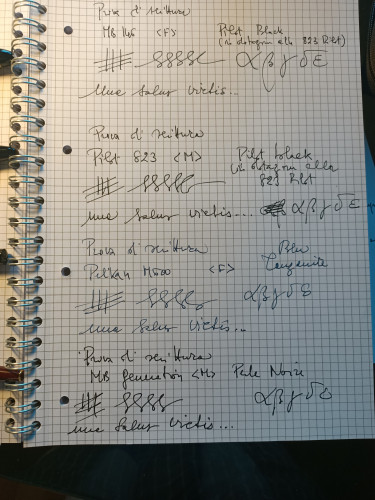 Prova di scrittura
MB 146 <F> Pilot Black
(in dotazione alla 823 Pilot)
α β γ δ ε
Una salus victis...
Prova di scrittura
Pilot 823 <M> Pilot black
in dotazione alla
823 Pilot
Una salus victis... α β γ δ ε
Prova di scrittura Blu
Pelikan M600 <F> Tanzanite
α β γ δ ε
Una salus victis...
Prova di scrittura
MB Generation <M> Perle Noire
α β γ δ ε
Una salus victis...